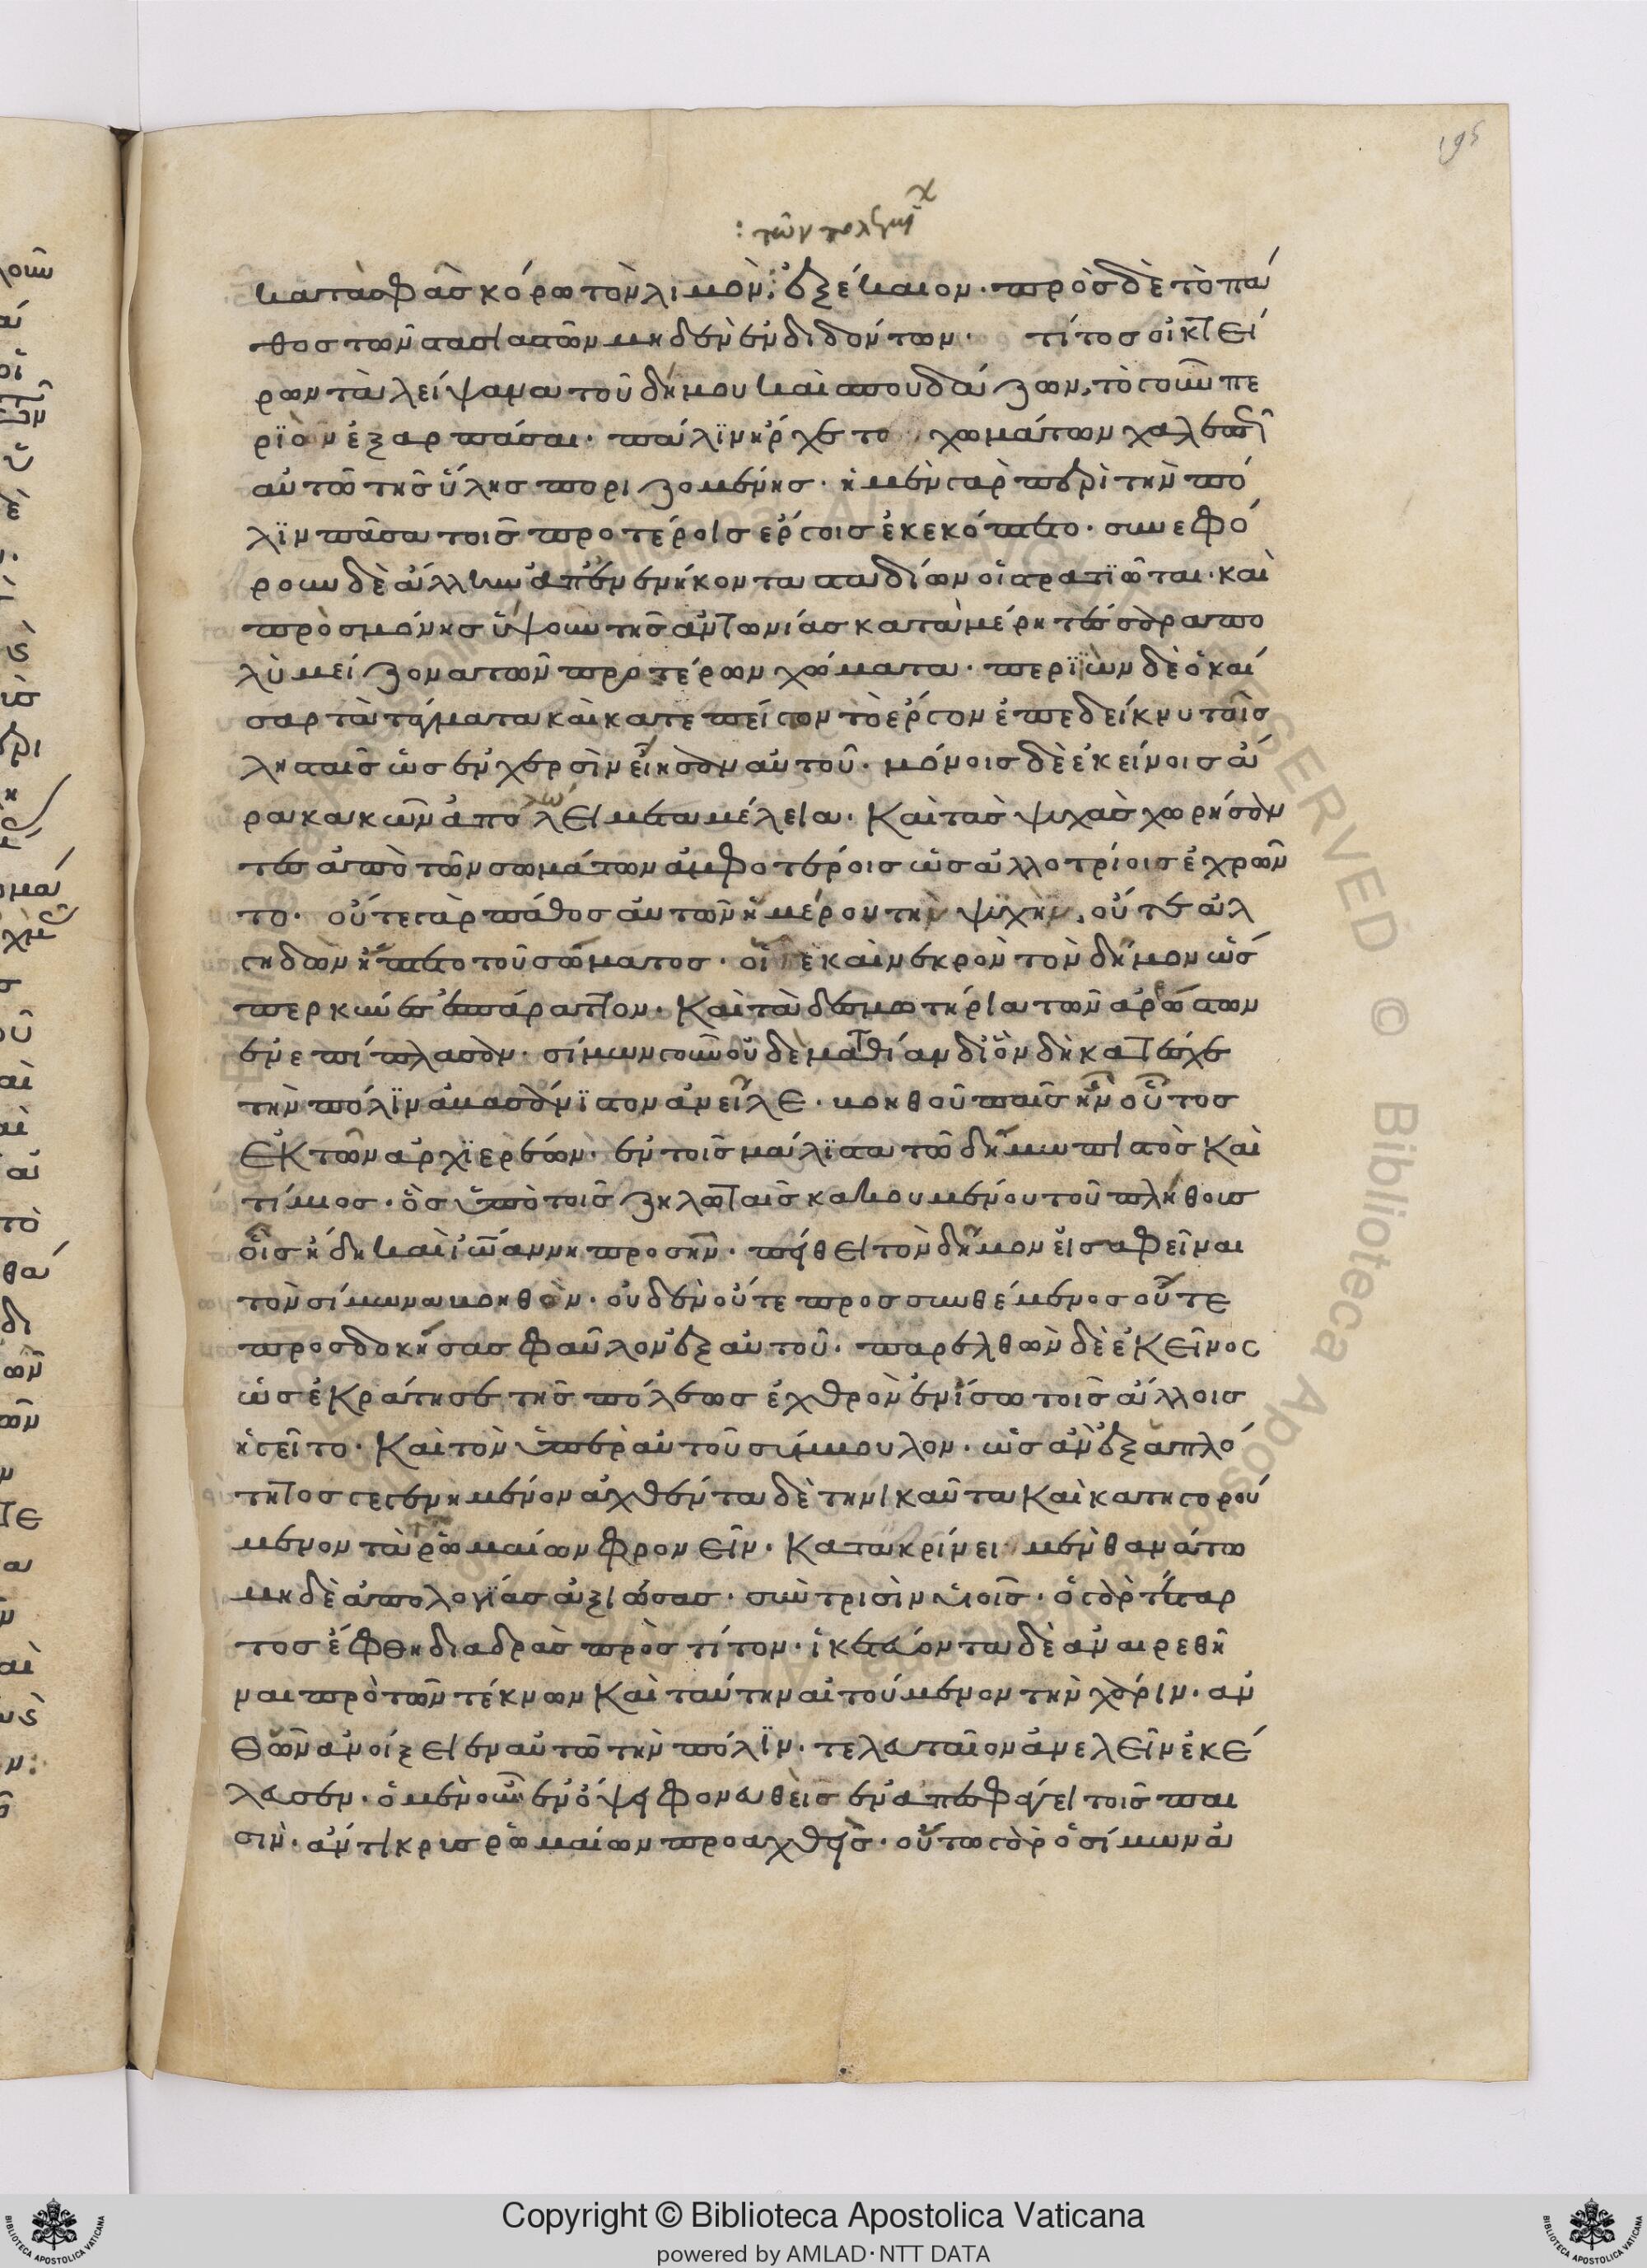 195
: τῶν πολεμίων
καὶ τὰς φάσκοντο τὸν λιμὸν· ἐξέκαιον· πρὸς δὲ τὸ πά
θος τῶν στασιαστῶν μηδὲν ἐνδιδόντων· τίτος οἰκτεί
ρων τὰ λείψανα τοῦ δήμου καὶ σπουδάζων, τὸ γοῦν πε
ριὸν ἐξαρπάσαι· πάλιν ἤρχετο χωμάτων χαλεπῶς
αὐτῶ τῆς ὕλης ποριζομένης· ἡ μὲν γὰρ περὶ τὴν πό
λϊν πᾶσα τοῖς προτέροις ἔργοις ἐκεκόπτο· συνεφό
ρουν δὲ ἄλλην ἀπ' ἐνενήκοντα σταδίων οἱ στρατϊῶται· καὶ
πρὸς μόνης ὕψουν τῆς ἀντωνίας κατὰ μέρη τέσσαρα πο
λὺ μείζονα τῶν προτέρων χώματα· περϊϊὼν δὲ ὁ καῖ
σαρ τὰ τάγματα καὶ κατεπείγων τὸ ἔργον ἐπεδείκνυ τοῖς
λησταῖς ὡς ἐν χερσὶν εἴησαν αὐτοῦ· μόνοις δὲ ἐκείνοις ἄ
ρα κακῶν ἀπολώλει μεταμέλεια· Καὶ τὰς ψυχὰς χωρήσαν
τες ἀπὸ τῶν σωμάτων ἀμφοτέροις ὡς ἀλλοτρίοις ἐχρῶν
το· οὔτε γὰρ πάθος αὐτῶν ἡμέρου τὴν ψυχὴν, οὔτε ἀλ
γηδὼν ἥπτετο τοῦ σώματος· οἵ γε καὶ νεκρὸν τὸν δῆμον ὥσ
περ κύνες ἐσπάραττον· Καὶ τὰ δεσμωτήρια τῶν ἀρρώστων
ἐνεπίπλασαν· σίμων γοῦν οὐδὲ ματθίαν δι' ὃν δὴ κατέσχε
τὴν πόλϊν ἀβασάνϊστον ἀνεῖλε· βοηθοῦ παῖς ἦν οὗτος
ἐκ τῶν ἀρχϊερέων· ἐν τοῖς μάλϊστα τῶ δήμω πιστὸς Καὶ
τίμιος· ὃς ὑπὸ τοῖς ζηλωταῖς κακουμένου τοῦ πλήθους
οἷς ἤδη καὶ ἰωάννη προσῆν· πείθει τὸν δῆμον εἰσαφεῖναι
τὸν σίμωνα βοηθὸν· οὐδὲν οὔτε προσσυνθέμενος οὔτε
προσδοκήσας φαῦλον ἐξ αὐτοῦ· παρελθὼν δὲ ἐκεῖνος
ὡς ἐκράτησε τῆς πόλεως ἐχθρὸν ἐνίσω τοῖς ἄλλοις
ἡγεῖτο· Καὶ τὸν ὑπὲρ αὐτοῦ σύμβουλον· ὡς ἂν ἐξ ἁπλό
τητος γεγενημένον ἀχθέντα δὲ τηνικαῦτα Καὶ κατηγορού
μενον τὰ ῥωμαίων φρονεῖν· Κατακρίνει μὲν θανάτω
μηδὲ ἀπολογϊας ἀξιώσας· σὺν τρισὶν υἱοῖς· ὁ γὰρ τέταρ
τος ἔφθη διαδρὰς πρὸς τίτον· ἱκετεύοντα δὲ ἀναιρεθῆ
ναι πρὸ τῶν τέκνων Καὶ ταύτην αἰτούμενον τὴν χάριν· ἀν
θ' ὧν ἀνοίξειεν αὐτῶ τὴν πόλϊν· τελευταῖον ἀνελεῖν ἐκέ
λευσεν· ὁ μὲν οὖν ἐν ὄψει φονευθεὶς ἐναπεσφάγει τοῖς παι
σὶν· ἀντικρυς ῥωμαίων προαχθεὶς· οὕτω γὰρ ὁ σίμων ἀ
Copyright © Biblioteca Apostolica Vaticana
powered by AMLAD·NTT DATA